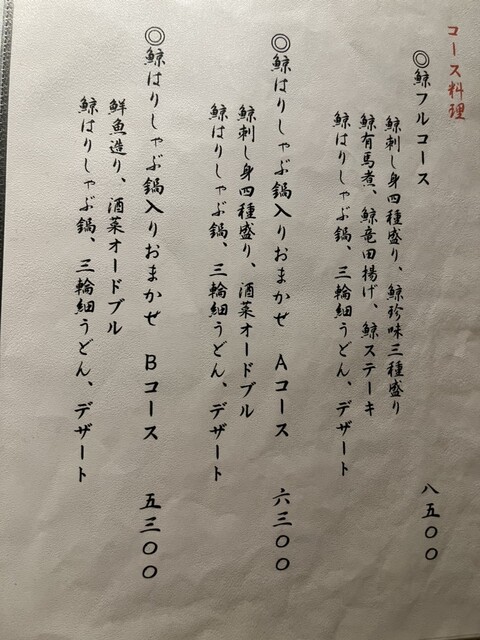 コース料理
◎鯨フルコース 八五〇〇
鯨刺し身四種盛り、鯨珍味三種盛り
鯨有馬煮、鯨竜田揚げ、鯨ステーキ
鯨はりしゃぶ鍋、三輪細うどん、デザート
◎鯨はりしゃぶ鍋入りおまかせ Aコース 六三〇〇
鯨刺し身四種盛り、酒菜オードブル
鯨はりしゃぶ鍋、三輪細うどん、デザート
◎鯨はりしゃぶ鍋入りおまかせ Bコース 五三〇〇
鮮魚造り、酒菜オードブル
鯨はりしゃぶ鍋、三輪細うどん、デザート